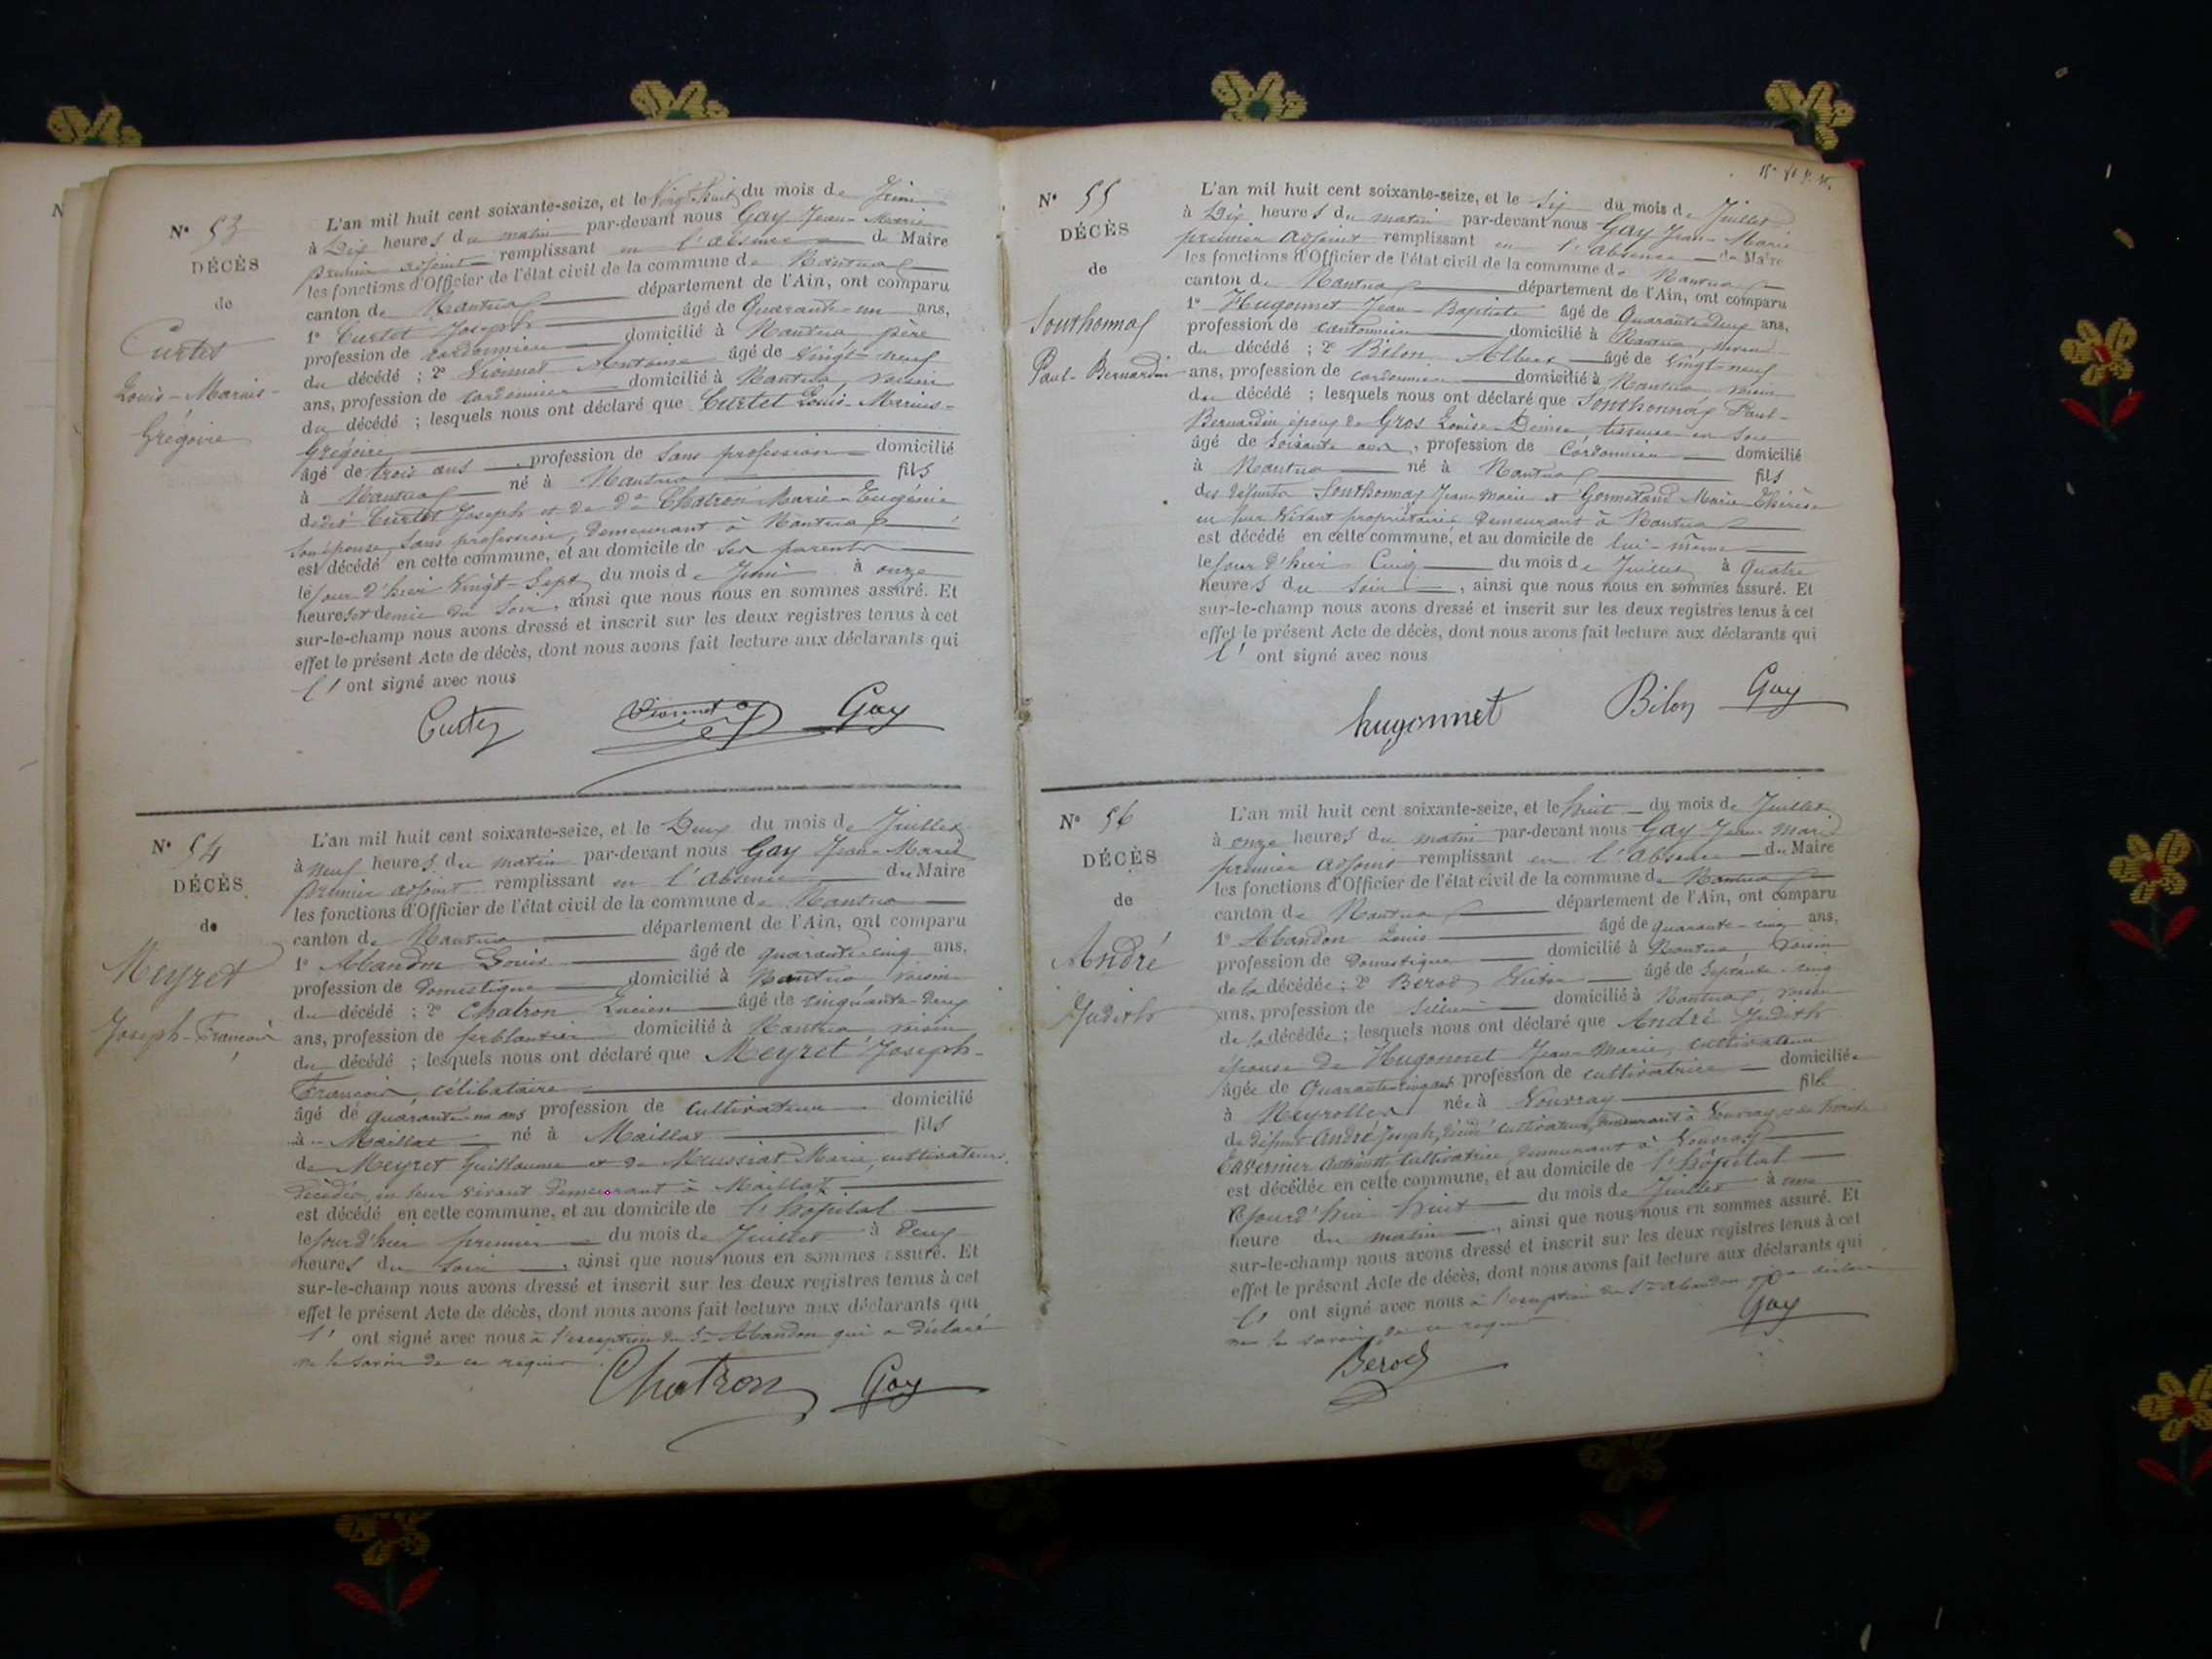 N° 53
DÉCÈS
de
Curtet
Louis-Marius-
Grégoire
L'an mil huit cent soixante-seize, et le Vingt-huit du mois de Juin
à Dix heures du matin par-devant nous Gay Jean-Marie
premier adjoint remplissant en l'absence du Maire
les fonctions d'Officier de l'état civil de la commune de Nantua
canton de Nantua département de l'Ain, ont comparu
1° Curtet Joseph âgé de Quarante-un ans,
profession de cordonnier domicilié à Nantua père
du décédé ; 2° Vionnet Antoine âgé de vingt-neuf
ans, profession de cordonnier domicilié à Nantua, voisin
du décédé ; lesquels nous ont déclaré que Curtet Louis-Marius-
Grégoire
âgé de trois ans, profession de sans profession domicilié
à Nantua né à Nantua fils
dudit Curtet Joseph et de De Chatron Marie-Eugénie
son épouse, sans profession, demeurant à Nantua
est décédé en cette commune, et au domicile de ses parents
le jour d'hier Vingt-Sept du mois de Juin à onze
heures et demie du soir, ainsi que nous nous en sommes assuré. Et
sur-le-champ nous avons dressé et inscrit sur les deux registres tenus à cet
effet le présent Acte de décès, dont nous avons fait lecture aux déclarants qui
l' ont signé avec nous
Curtet Vionnet Gay
N° 54
DÉCÈS
de
Meyret
Joseph-François
L'an mil huit cent soixante-seize, et le Deux du mois de Juillet
à neuf heures du matin par-devant nous Gay Jean-Marie
premier adjoint remplissant en l'absence du Maire
les fonctions d'Officier de l'état civil de la commune de Nantua
canton de Nantua département de l'Ain, ont comparu
1° Abandon Louis âgé de quarante-cinq ans,
profession de domestique domicilié à Nantua, voisin
du décédé ; 2° Chatron Lucien âgé de cinquante-deux
ans, profession de ferblantier domicilié à Nantua voisin
du décédé ; lesquels nous ont déclaré que Meyret Joseph-
François, célibataire
âgé de quarante-un ans profession de cultivateur domicilié
à Maillat né à Maillat fils
de Meyret Guillaume et de Mussiat Marie, cultivateurs
décédés, en leur vivant demeurant à Maillat
est décédé en cette commune, et au domicile de l'hôpital
le jour d'hier premier du mois de Juillet à deux
heures du soir, ainsi que nous nous en sommes assuré. Et
sur-le-champ nous avons dressé et inscrit sur les deux registres tenus à cet
effet le présent Acte de décès, dont nous avons fait lecture aux déclarants qui
l' ont signé avec nous à l'exception du Sr Abandon qui a déclaré
ne le savoir de ce requis
Chatron Gay
N° 55
DÉCÈS
de
Sonthonnax
Paul-Bernardin
L'an mil huit cent soixante-seize, et le Six du mois de Juillet
à Dix heures du matin par-devant nous Gay Jean-Marie
premier adjoint remplissant en l'absence du Maire
les fonctions d'Officier de l'état civil de la commune de Nantua
canton de Nantua département de l'Ain, ont comparu
1° Hugonnet Jean-Baptiste âgé de Quarante-Deux ans,
profession de cantonnier domicilié à Nantua, neveu
du décédé ; 2° Bilon Albert âgé de vingt-neuf
ans, profession de cordonnier domicilié à Nantua voisin
du décédé ; lesquels nous ont déclaré que Sonthonnax Paul-
Bernardin époux de Gros Louise-Denise tisseuse en soie
âgé de soixante ans, profession de Cordonnier domicilié
à Nantua né à Nantua fils
des défunts Sonthonnax Jean Marie et Gonnetand Marie-Thérèse
en leur vivant propriétaires demeurant à Nantua
est décédé en cette commune, et au domicile de lui-même
le jour d'hier Cinq du mois de Juillet à quatre
heures du soir, ainsi que nous nous en sommes assuré. Et
sur-le-champ nous avons dressé et inscrit sur les deux registres tenus à cet
effet le présent Acte de décès, dont nous avons fait lecture aux déclarants qui
l' ont signé avec nous
hugonnet Bilon Gay
N° 56
DÉCÈS
de
André
Judith
L'an mil huit cent soixante-seize, et le huit du mois de Juillet
à onze heures du matin par-devant nous Gay Jean-Marie
premier adjoint remplissant en l'absence du Maire
les fonctions d'Officier de l'état civil de la commune de Nantua
canton de Nantua département de l'Ain, ont comparu
1° Abandon Louis âgé de quarante-cinq ans,
profession de Domestique domicilié à Nantua, voisin
de la décédée ; 2° Berod Victor âgé de Septante-cinq
ans, profession de Sellier domicilié à Nantua, voisin
de la décédée ; lesquels nous ont déclaré que André Judith
épouse de Hugonnet Jean-Marie, cultivateur
âgée de Quarante-cinq ans profession de cultivatrice domiciliée
à Neyrolles née à Vouvray fille
de défunt André Joseph, cultivateur, demeurant à Vouvray et de
Tavernier cultivatrice, demeurant à Vouvray
est décédée en cette commune, et au domicile de l'hôpital
Cejourd'hui huit du mois de Juillet à une
heure du matin, ainsi que nous nous en sommes assuré. Et
sur-le-champ nous avons dressé et inscrit sur les deux registres tenus à cet
effet le présent Acte de décès, dont nous avons fait lecture aux déclarants qui
l' ont signé avec nous à l'exception du Sr Abandon qui a déclaré
ne le savoir de ce requis
Berod Gay